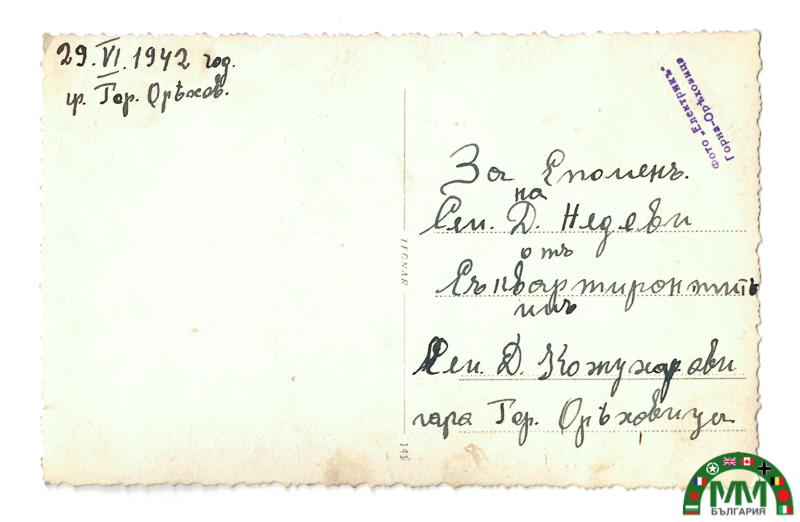 29.VI.1942 год.
гр. Гор. Орѣхов.
Фото „Електрикъ“
Горна-Орѣховица
За споменъ.
на
Сем. Д. Недеви
отъ
Съквартирантитѣ
имъ
Сем. Д. Кожухарови
гара Гор. Орѣховица
LEONAR
ММ
БЪЛГАРИЯ